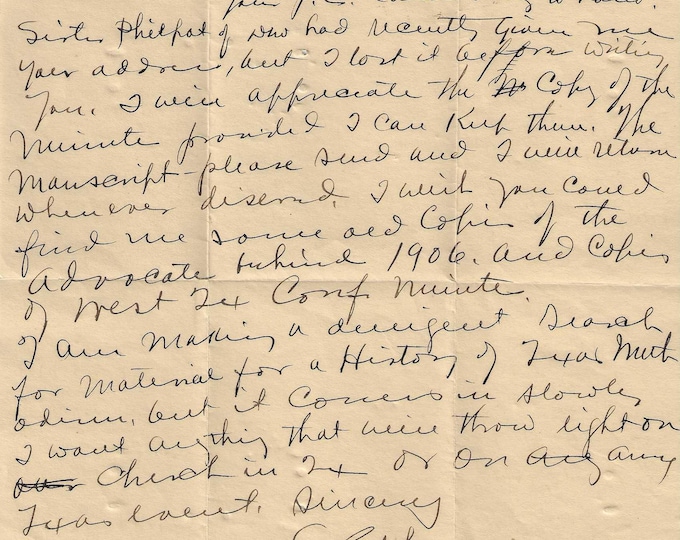 Sister Philpot of who had recently given me
your address, but I lost it before writing
you. I will appreciate the Copy of the
Minute provided I can keep them. The
Manuscript - please send and I will return
whenever desired. I wish you could
find me some old Copies of the
Advocate behind 1906. and Copies
of West Tx Conf. Minute.
I am making a diligent search
for material for a History of Texas Meth
odism, but it comes in slowly
I want anything that will throw light on
Church in Tx or on any
Texas event. Sincerely